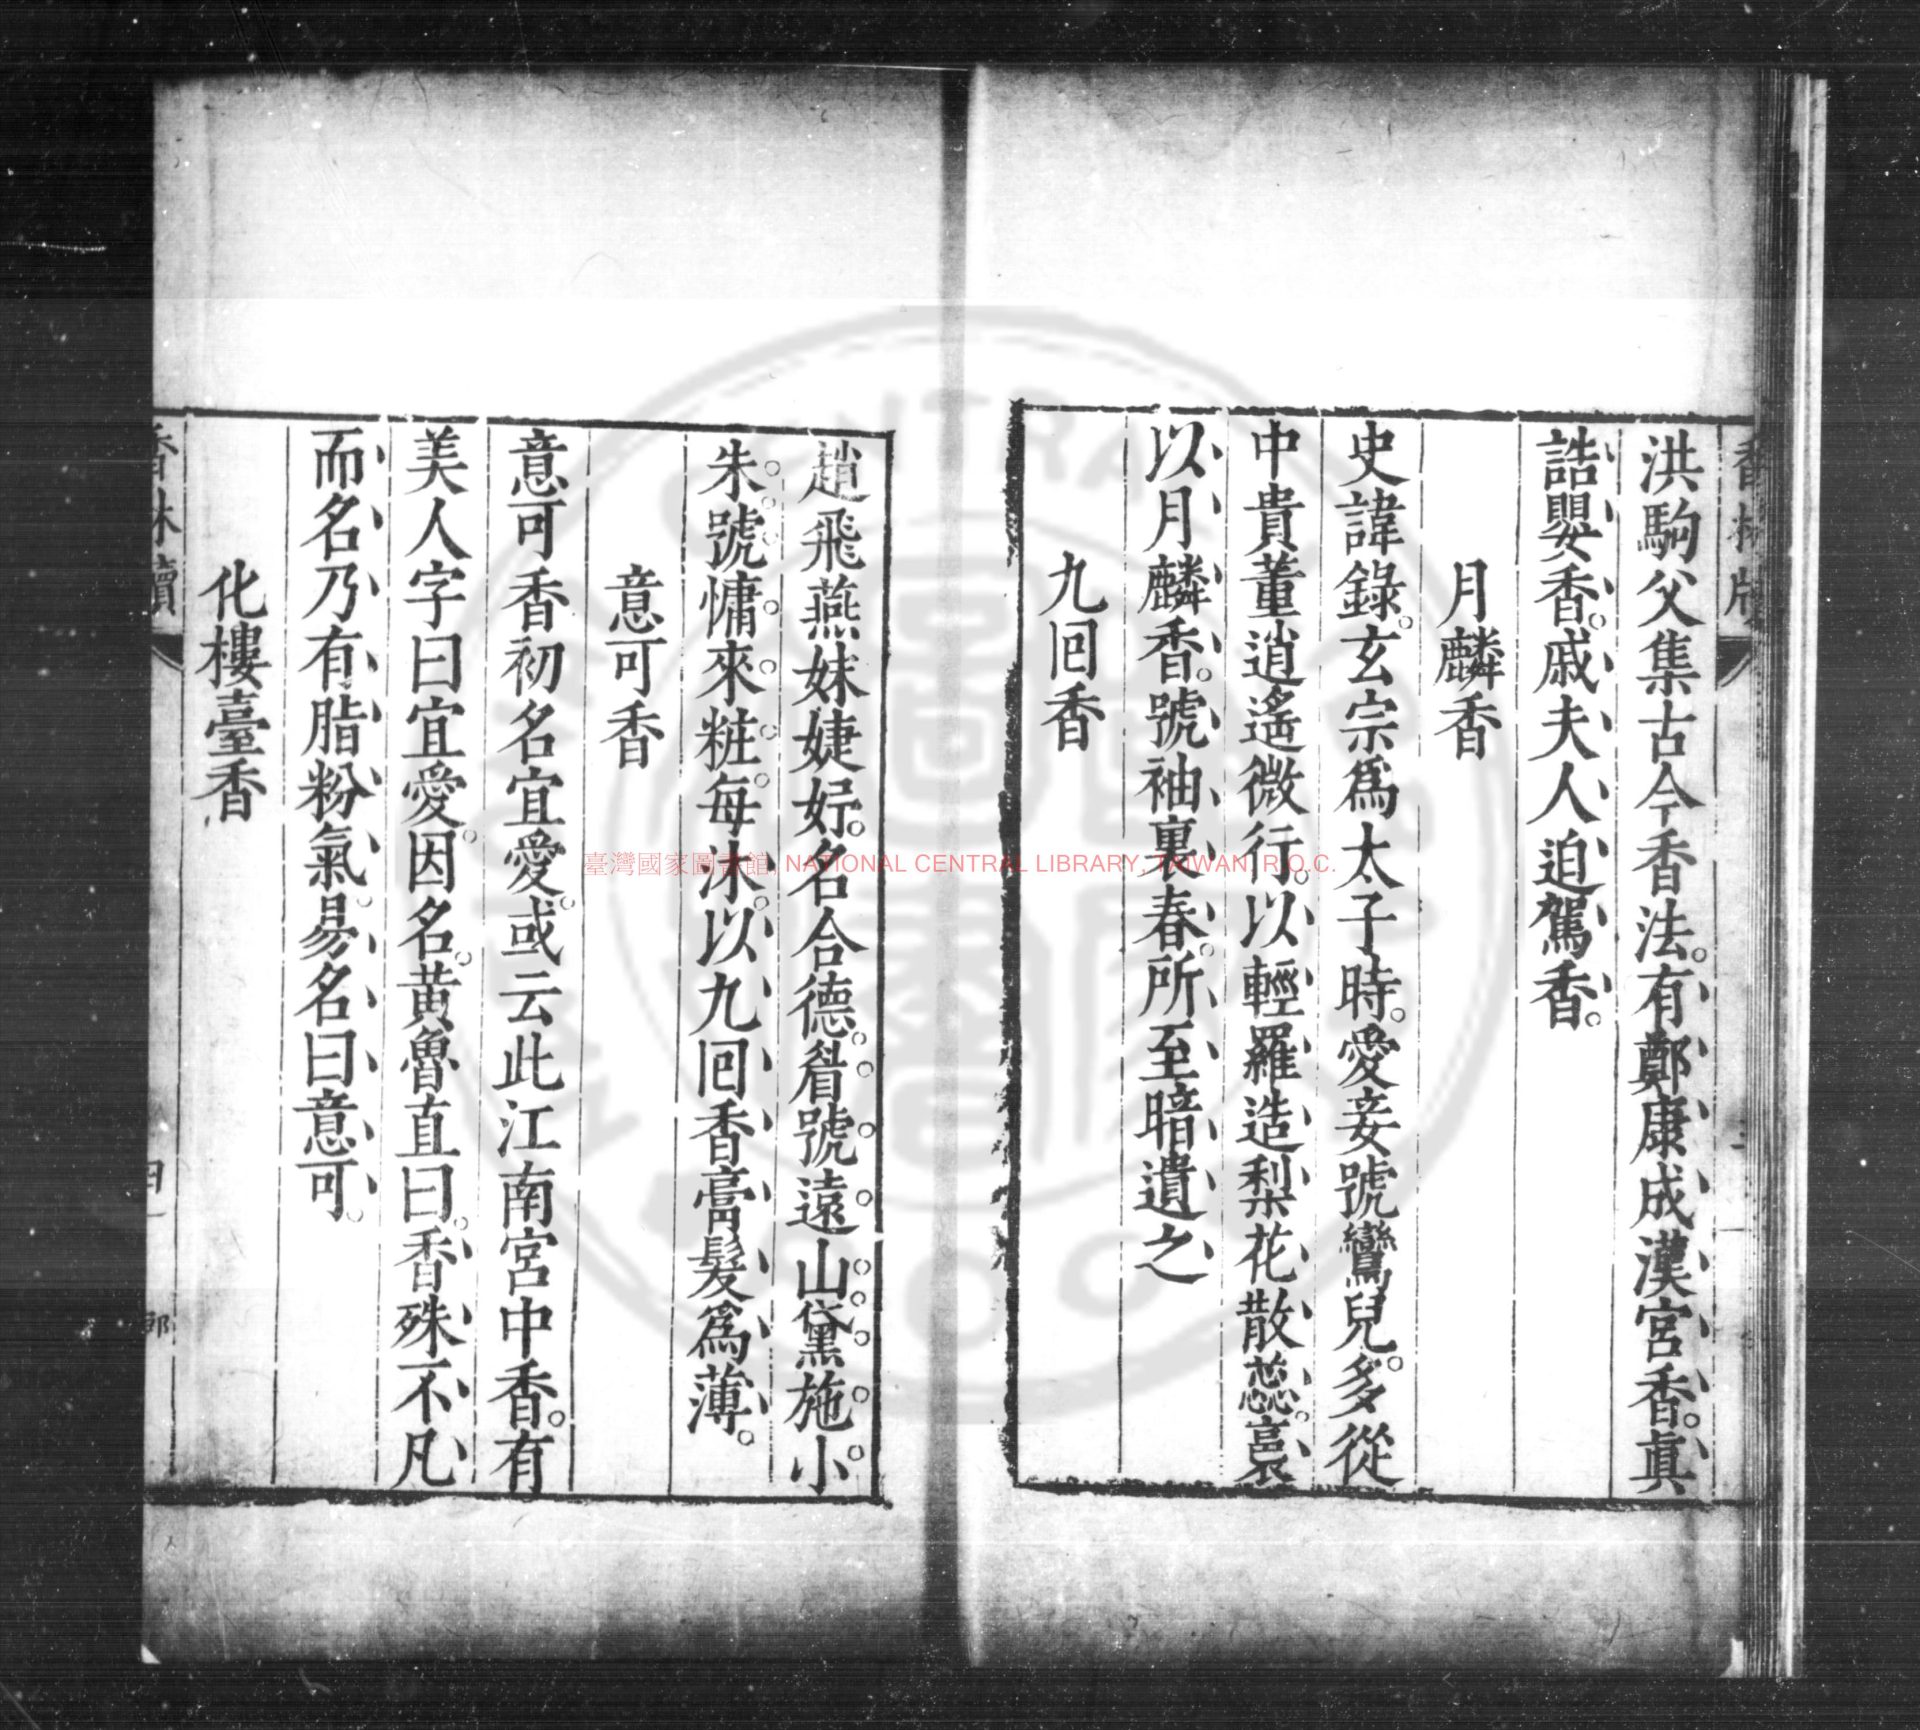 洪駒父集古今香法。有鄭康成漢宮香。真
誥嬰香。戚夫人迫駕香。
月麟香
史諱錄。玄宗爲太子時。愛妾號鸞兒。多從
中貴董逍遙微行。以輕羅造梨花散蕊。裛
以月麟香。號袖裏春。所至暗遺之
九回香
趙飛燕妹婕妤。名合德。眉號遠山黛。施小
朱。號慵來粧。每沐。以九回香膏髮爲薄。
意可香
意可香初名宜愛。或云此江南宮中香。有
美人字曰宜愛。因名。黃魯直曰。香殊不凡
而名乃有脂粉氣。易名曰意可。
化樓臺香
香牘
四
郎
臺灣國家圖書館, NATIONAL CENTRAL LIBRARY, TAIWAN, R.O.C.